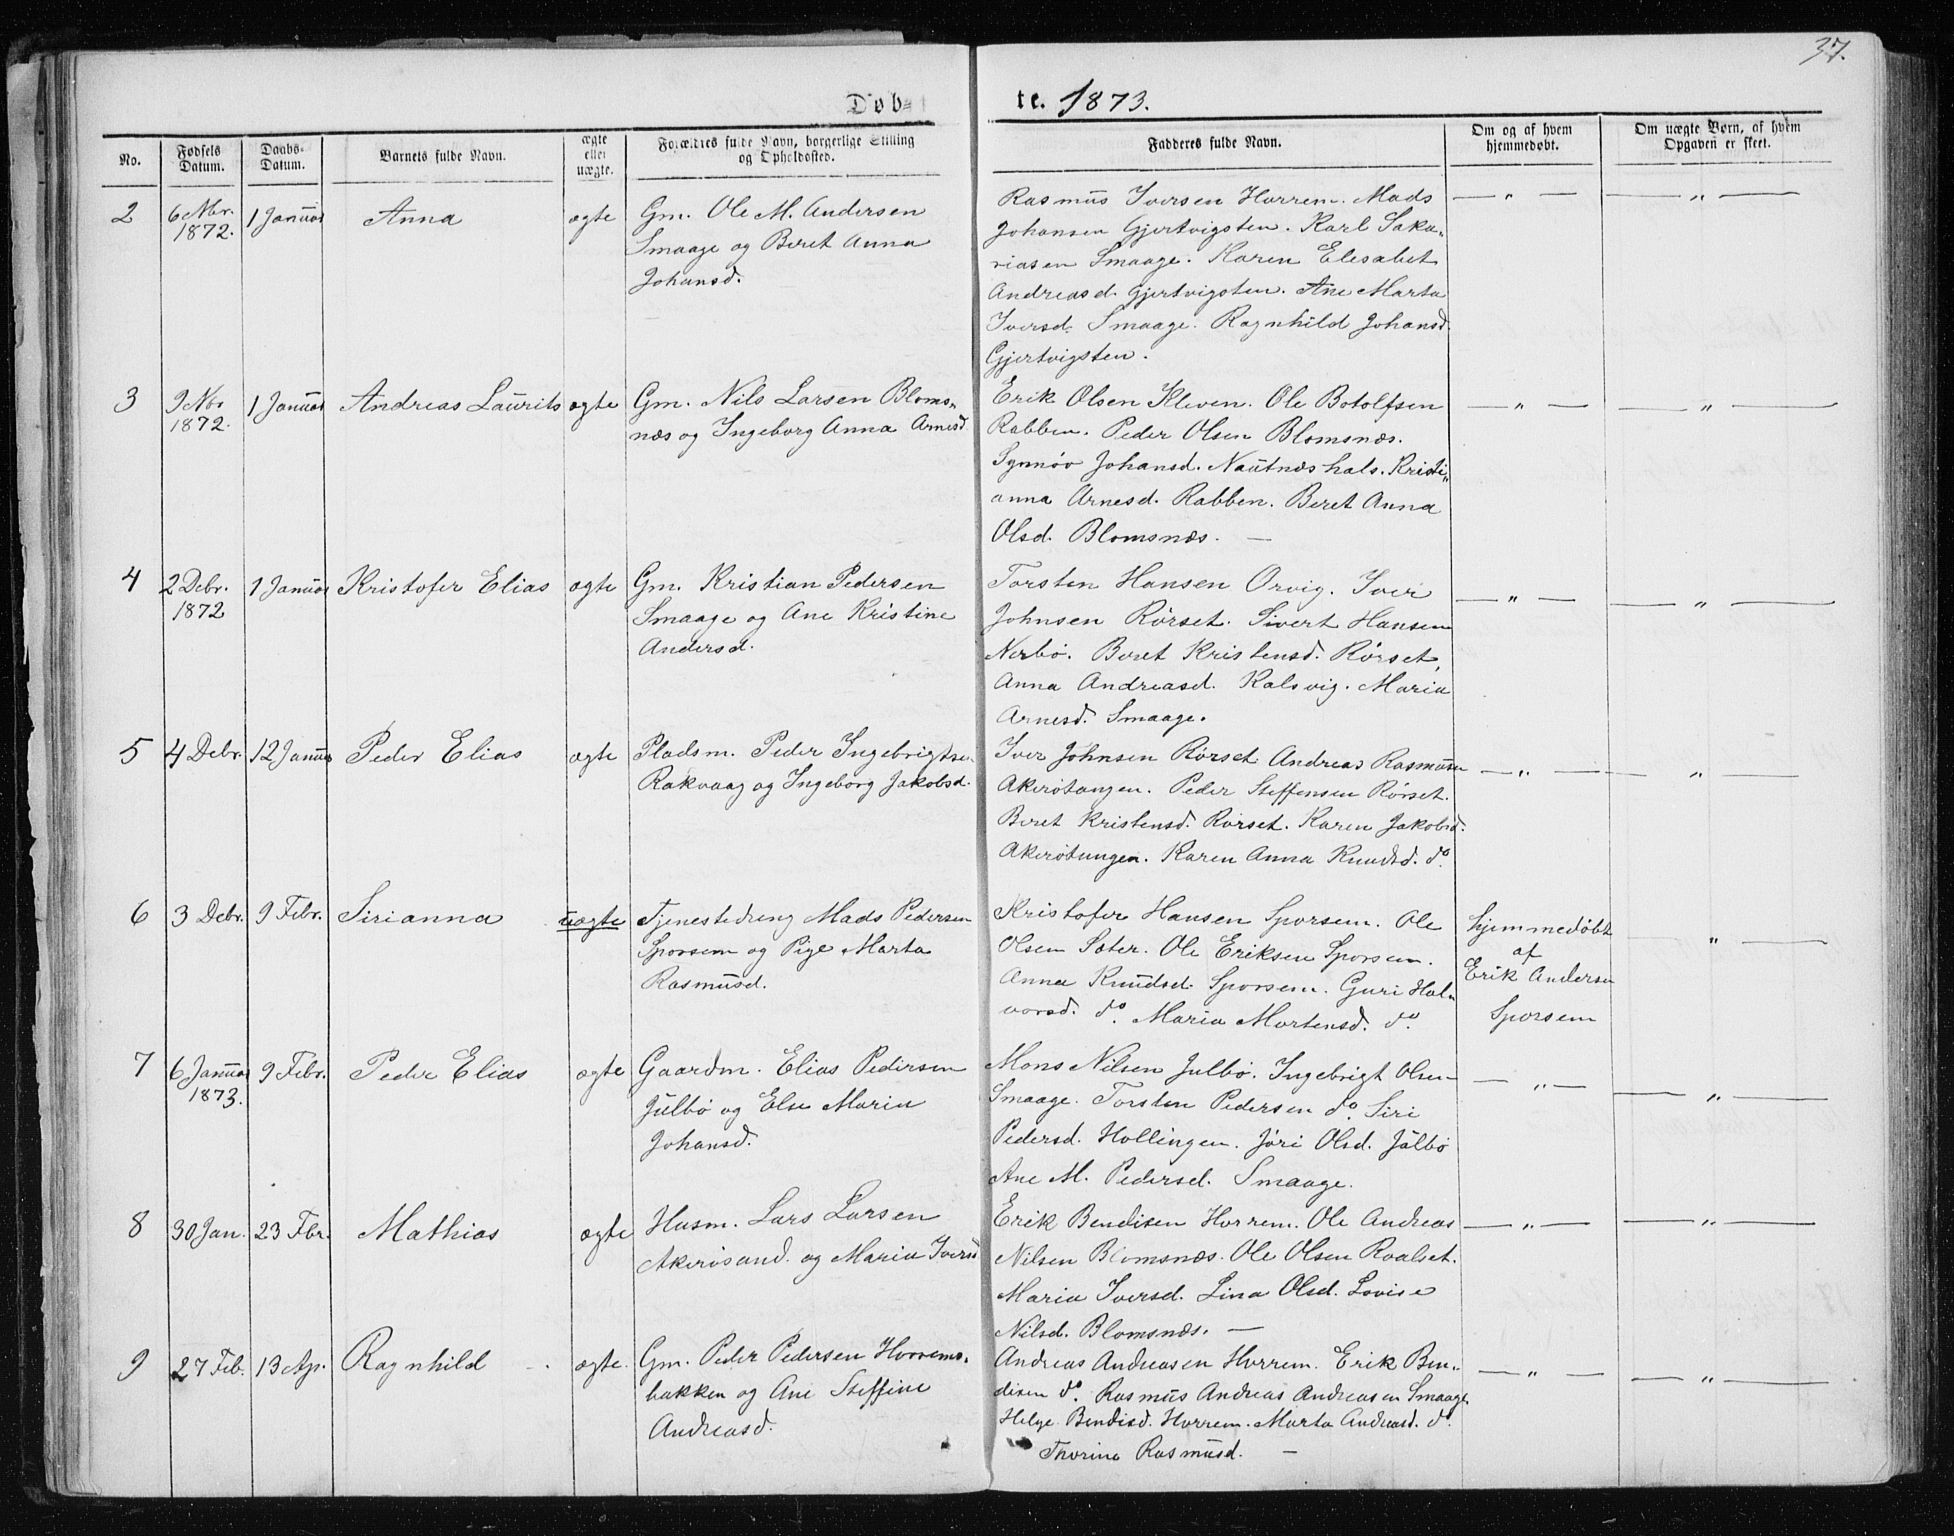 37.
Døbte. 1873.
No. | Fødsels Datum. | Daabs-Datum. | Barnets fulde Navn. | ægte eller uægte. | Forældres fulde Navn, borgerlige Stilling og Opholdssted. | Fadderes fulde Navn. | Om og af hvem hjemmedøbt. | Om uægte Børn, af hvem Opgaven er skeet.
2 | 6 Nbr. 1872. | 1 Januar | Anna | ægte
Gm. Ole M. Andersen
Smaage og Beret Anna
Johansd.
Rasmus Iversen Horrem. Mads
Johansen Gjertvigsten. Karl Saka„
riasen Smaage. Karen Elesabet
Andreasd. Gjertvigsten. Ane Marta
Iversd. Smaage. Ragnhild Johansd.
Gjertvigsten.
— „ — | — „ —
3 | 9 Nov 1872. | 1 Januar | Andreas Laurits | ægte
Gm. Nils Larsen Bloms„
næs og Ingeborg Anna Arnesd.
Erik Olsen Kleven. Ole Botolfsen
Rabben. Peder Olsen Blomsnæs.
Synnøv Johansd. Nautneshals. Kristi„
anna Arnesd. Rabben. Beret Anna
Olsd. Blomsnæs. —
— „ — | — „ —
4 | 2 Debr. 1872 | 1 Januar | Kristofer Elias | ægte
Gm. Kristian Pedersen
Smaage og Ane Kristine
Andersd.
Torsten Hansen Orvig. Iver
Johnsen Rörset. Sivert Hansen
Nerbö. Beret Kristensd. Rörset,
Anna Andreasd. Kalsvig. Maria
Arnesd. Smaage.
— „ — | — „ —
5 | 4 Debr. | 12 Januar | Peder Elias | ægte
Pladsm. Peder Ingebrigtsen
Rakvaag og Ingeborg Jakobsd.
Iver Johnsen Rörset. Andreas Rasmusen
Akerötangen. Peder Steffensen Rörset.
Beret Kristensd. Rörset. Karen Jakobsd.
Akerötangen. Karen Anna Knudsd. do.
— „ — | — „ —
6 | 3 Debr. | 9 Febr. | Sirianna | uægte
Tjenestedreng Mads Pedersen
Sporsem og Pige Marta
Rasmusd.
Kristofer Hansen Sporsem. Ole
Olsen Sæter. Ole Eriksen Sporsem.
Anna Knudsd. Sporsem. Guri Hal„
vorsd. do. Maria Mortensd. do.
hjemmedöbt
af
Erik Andersen
Sporsem
— „ —
7 | 6 Januar 1873. | 9 Febr. | Peder Elias | ægte
Gaardm. Elias Pedersen
Julbö og Else Maria
Johansd.
Mons Nilsen Julbö. Ingebrigt Olsen
Smaage. Torsten Pedersen do. Siri
Pedersd. Hollingen. Jöri Olsd. Julbö
Ane M. Pedersd. Smaage.
— „ — | — „ —
8 | 30 Jan. | 23 Fbr. | Mathias | ægte
Husm. Lars Larsen
Akerösand. og Maria Iversd
Erik Bendiksen Horrem. Ole Andreas
Nilsen Blomsnæs. Ole Olsen Roalset.
Maria Iversd. Lina Olsd. Lovise
Nilsd. Blomsnæs. —
— „ — | — „ —
9 | 27 Feb. | 13 Ap. | Ragnhild | ægte.
Gm. Peder Pedersen Horrems„
bakken og Ane Steffine
Andreasd.
Andreas Andreasen Horrem. Erik Ben„
diksen do. Rasmus Andreas Andreasen Smaage
Helge Bendiksd. Horrem. Marta Andreasd. do.
Thorine Rasmusd. —
— „ — | — „ —